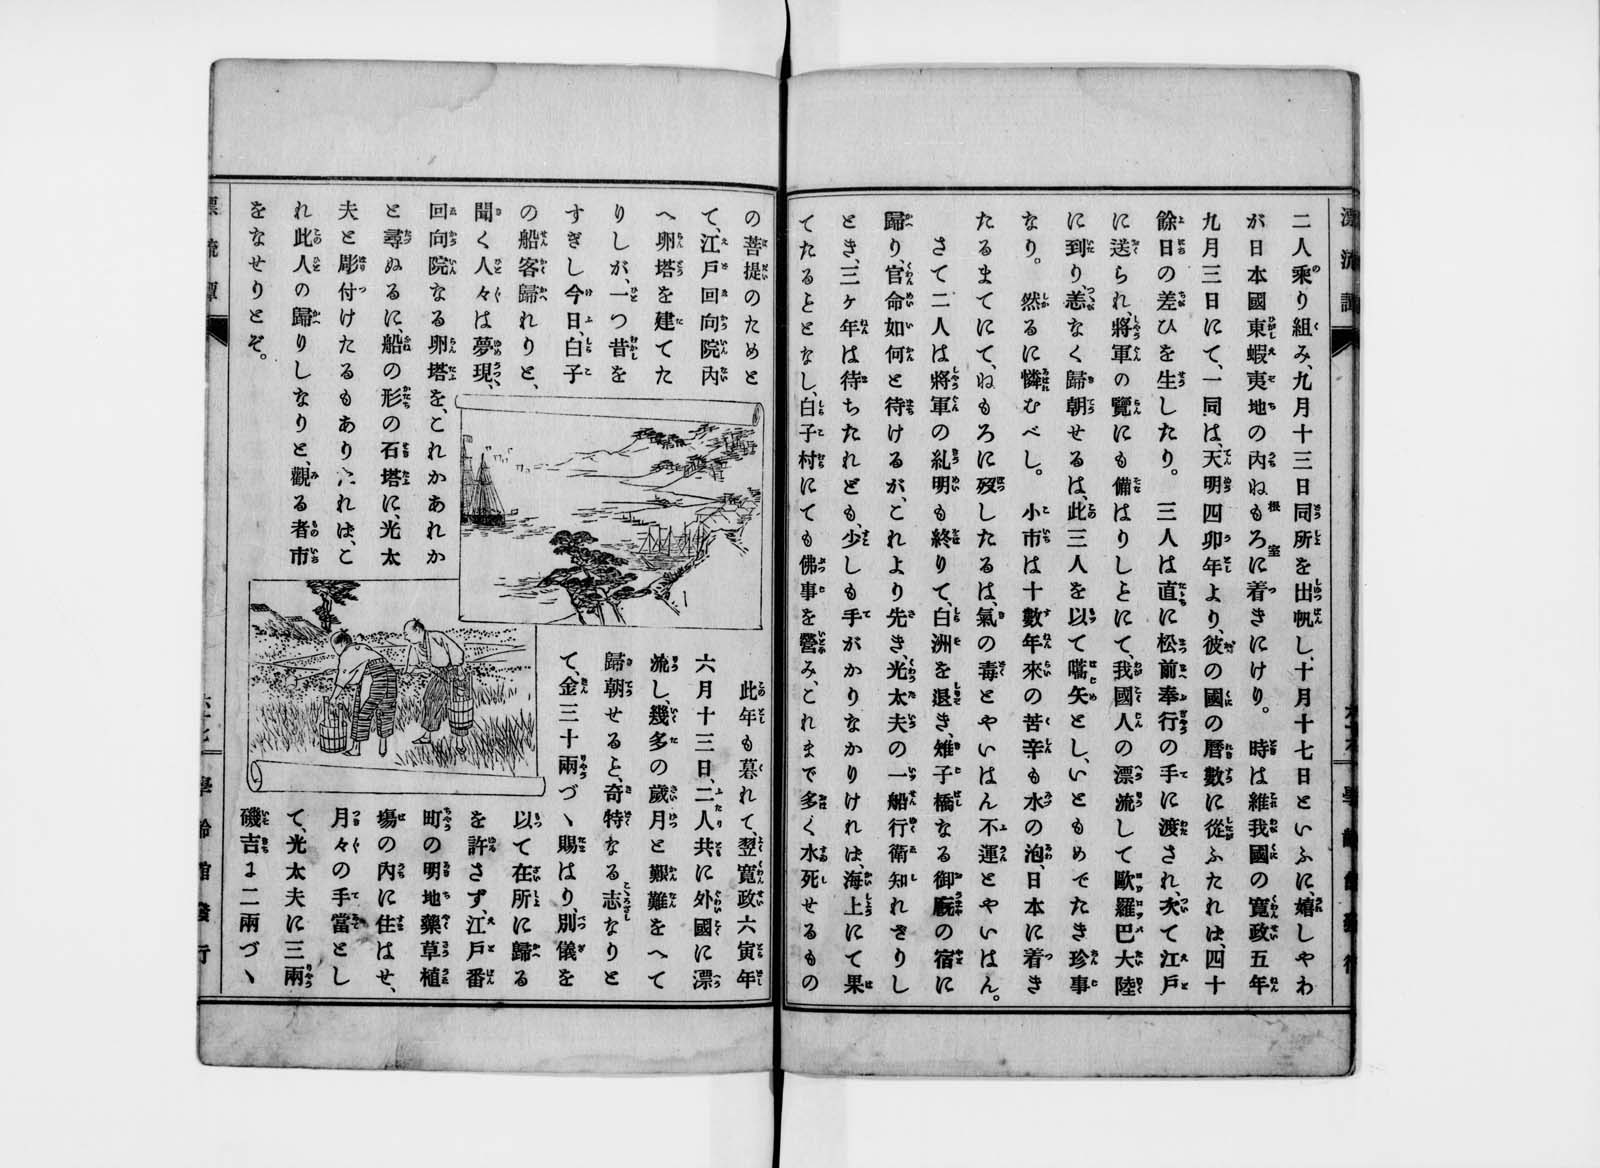 漂流譚
二人乘り組み、九月十三日同所を出帆し、十月十七日といふに、嬉しやわ
が日本國東蝦夷地の内ねもろに着きにけり。時は維我國の寛政五年
九月三日にて、一同は、天明四卯年より、彼の國の暦數に從ふたれは、四十
餘日の差ひを生したり。三人は直に松前奉行の手に渡され、次て江戸
に送られ、將軍の覽にも備はりしとにて、我國人の漂流して歐羅巴大陸
に到り、恙なく歸朝せるは、此三人を以て嚆矢とし、いともめでたき珍事
なり。然るに憐むべし。小市は十數年來の苦辛も水の泡、日本に着き
たるまてにて、ねもろに歿したるは、氣の毒とやいはん不運とやいはん。
さて二人は將軍の糺明も終りて、白洲を退き、雉子橋なる御廐の宿に
歸り、官命如何と待けるが、これより先き、光太夫の一船行衛知れざりし
とき、三ヶ年は待ちたれども、少しも手がかりなかりけれは、海上にて果
てたるととなし、白子村にても佛事を營み、これまで多く水死せるもの
の菩提のためと
て、江戸回向院内
へ卵塔を建てた
りしが、一つ昔を
すぎし今日、白子
の船客歸れりと、
聞く人々は夢現、
回向院なる卵塔を、これかあれか
と尋ぬるに、船の形の石塔に、光太
夫と彫付けたるもありたれは、こ
れ此人の歸りしなりと、觀る者市
をなせりとぞ。
此年も暮れて、翌寛政六寅年
六月十三日、二人共に外國に漂
流し、幾多の歲月と艱難をへて
歸朝せると、奇特なる志なりと
て、金三十兩づゝ賜はり、別儀を
以て在所に歸る
を許さず、江戸番
町の明地藥草植
塲の内に住はせ、
月々の手當とし
て、光太夫に三兩
磯吉に二兩づゝ
漂流譚
學齡館發行